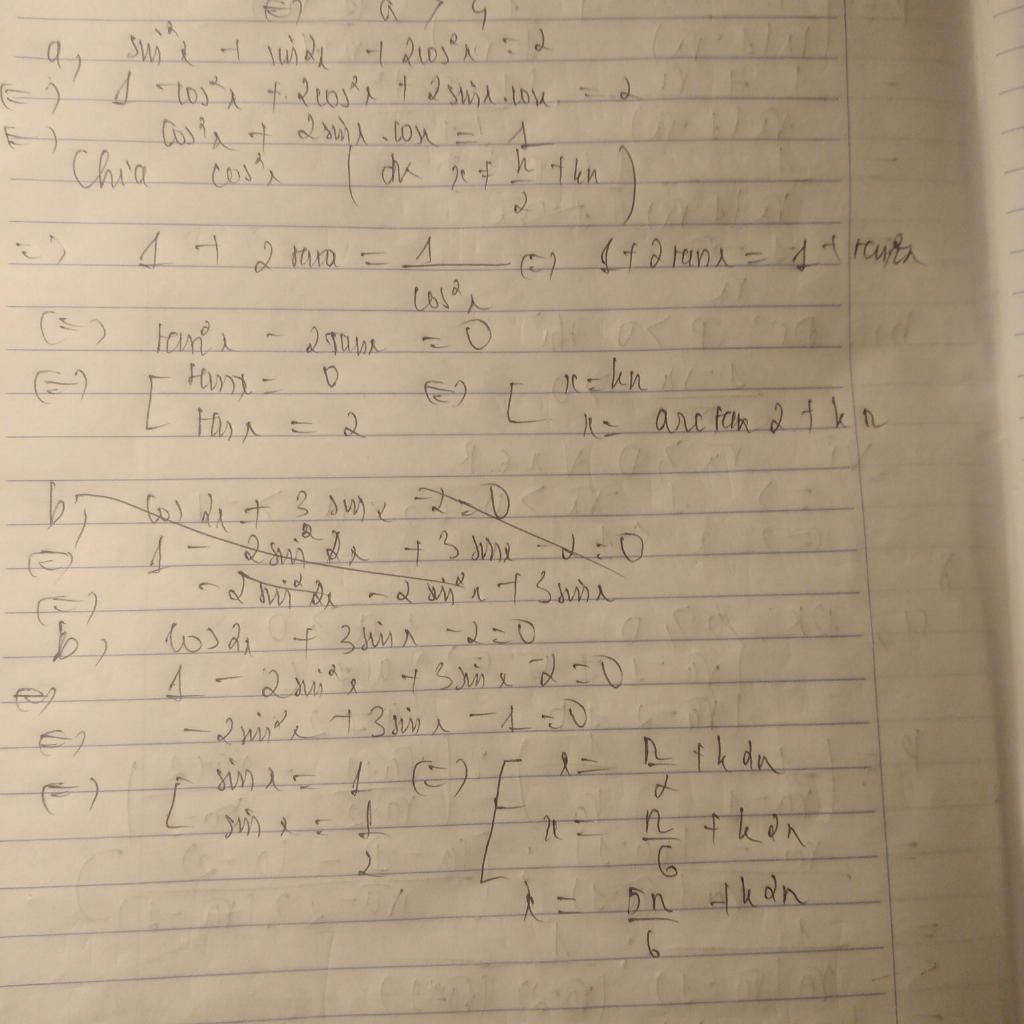 <=> a > 4
a, sin²x + sin2x + 2cos²x = 2
<=> 1 - cos²x + 2cos²x + 2sinx.cosx = 2
<=> cos²x + 2sinx.cosx = 1
Chia cos²x (đk x ≠ π/2 + kπ)
=> 1 + 2tanx = 1/cos²x <=> 1 + 2tanx = 1 + tan²x
<=> tan²x - 2tanx = 0
<=> [ tanx = 0 <=> [ x = kπ
tanx = 2 x = arctan2 + kπ
b, cos2x + 3sinx - 2 = 0
<=> 1 - 2sin²2x + 3sinx - 2 = 0
<=> -2sin²2x - 2sin²x + 3sinx
b, cos2x + 3sinx - 2 = 0
<=> 1 - 2sin²x + 3sinx - 2 = 0
<=> -2sin²x + 3sinx - 1 = 0
<=> [ sinx = 1 <=> [ x = π/2 + k2π
sinx = 1/2 x = π/6 + k2π
x = 5π/6 + k2π